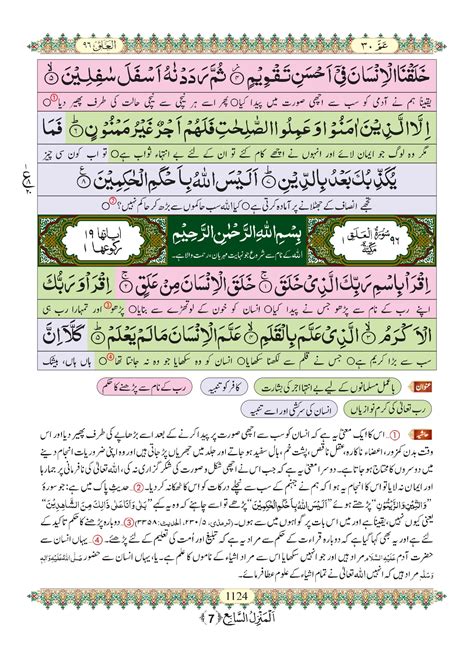 عَمّ ٣٠
اَلْعَلَق ٩٦
خَلَقْنَا الْاِنْسَانَ فِیْۤ اَحْسَنِ تَقْوِیْمٍ ﴿۴﴾ ثُمَّ رَدَدْنٰهُ اَسْفَلَ سٰفِلِیْنَ ﴿۵﴾
یقیناً ہم نے آدمی کو سب سے اچھی صورت میں پیدا کیا ○ پھر اسے ہر نیچی سے نیچی حالت کی طرف پھیر دیا ○
اِلَّا الَّذِیْنَ اٰمَنُوْا وَ عَمِلُوا الصّٰلِحٰتِ فَلَهُمْ اَجْرٌ غَیْرُ مَمْنُوْنٍ ﴿۶﴾ فَمَا
مگر وہ لوگ جو ایمان لائے اور انہوں نے اچھے کام کئے تو ان کے لئے بے انتہاء ثواب ہے ○ تو اب کون سی چیز
یُكَذِّبُكَ بَعْدُ بِالدِّیْنِ ﴿۷﴾ اَلَیْسَ اللّٰهُ بِاَحْكَمِ الْحٰكِمِیْنَ ﴿۸﴾
تجھے انصاف کے جھٹلانے پر آمادہ کرتی ہے ○ کیا اللہ سب حاکموں سے بڑھ کر حاکم نہیں؟ ○
٩٦ سُوْرَةُ الْعَلَق مَكِّیَّة ١
بِسْمِ اللّٰهِ الرَّحْمٰنِ الرَّحِیْمِ
اللہ کے نام سے شروع جو نہایت مہربان، رحمت والا ہے۔
اٰیاتها ١٩
ركوعها ١
اِقْرَاْ بِاسْمِ رَبِّكَ الَّذِیْ خَلَقَ ﴿۱﴾ خَلَقَ الْاِنْسَانَ مِنْ عَلَقٍ ﴿۲﴾ اِقْرَاْ وَ رَبُّكَ
اپنے رب کے نام سے پڑھو جس نے پیدا کیا ○ انسان کو خون کے لوتھڑے سے بنایا ○ پڑھو اور تمہارا رب ہی
الْاَكْرَمُ ﴿۳﴾ الَّذِیْ عَلَّمَ بِالْقَلَمِ ﴿۴﴾ عَلَّمَ الْاِنْسَانَ مَا لَمْ یَعْلَمْ ﴿۵﴾ كَلَّاۤ اِنَّ
سب سے بڑا کریم ہے ○ جس نے قلم سے لکھنا سکھایا ○ انسان کو وہ سکھایا جو وہ نہ جانتا تھا ○ ہاں ہاں، بیشک
عنوان
باعمل مسلمانوں کے لیے بے انتہا اجر کی بشارت
کافر کو تنبیہ
رب کے نام سے پڑھنے کا حکم
رب تعالیٰ کی کرم نوازیاں
انسان کی سرکشی اور اسے تنبیہ
حاشیہ ①… اس کا ایک معنی یہ ہے کہ انسان کو سب سے اچھی صورت پر پیدا کرنے کے بعد اسے بڑھاپے کی طرف پھیر دیا اور اس
وقت بدن کمزور، اعضاء ناکارہ، عقل ناقص، پشت خم، بال سفید ہو جاتے اور جلد میں جھریاں پڑ جاتی ہیں اور وہ اپنی ضروریات انجام دینے
میں دوسروں کا محتاج ہو جاتا ہے۔ دوسرا معنی یہ ہے کہ جب اس نے اچھی شکل و صورت کی شکر گزاری نہ کی، اللہ تعالیٰ کی نافرمانی پر جما رہا
اور ایمان نہ لایا تو اس کا انجام یہ ہوا کہ ہم نے جہنم کے سب سے نچلے درکات کو اس کا ٹھکانہ کر دیا۔ ②… حدیث پاک میں ہے: جو سورۂ
"وَالتِّیْنِ وَالزَّیْتُوْنِ" پڑھتے ہوئے "اَلَیْسَ اللّٰهُ بِاَحْكَمِ الْحٰكِمِیْنَ" پڑھے تو اسے چاہیے کہ وہ یہ کہے: "بَلٰی وَاَنَا عَلٰی ذٰلِكَ مِنَ الشَّاهِدِیْنَ"
یعنی کیوں نہیں، یقیناً ہے اور میں اس بات پر گواہوں میں سے ہوں۔ (ترمذی، ٥/٢٣٠، الحدیث: ٣٣٥٨) ③… دوبارہ پڑھنے کا حکم تاکید کے
لئے ہے اور یہ بھی کہا گیا ہے کہ دوبارہ پڑھنے کے حکم سے مراد یہ ہے کہ تبلیغ اور امت کی تعلیم کے لئے پڑھئے۔ ④… یہاں انسان سے
حضرت آدم عَلَیْهِ السَّلَام مراد ہیں اور جو انہیں سکھایا اس سے مراد اشیاء کے ناموں کا علم ہے۔ یا، یہاں انسان سے حضور صَلَّی اللهُ عَلَیْهِ وَاٰلِهٖ
وَسَلَّم مراد ہیں کہ انہیں اللہ تعالیٰ نے تمام اشیاء کے علوم عطا فرمائے۔
1124
اَلْمَنْزِلُ السَّابِع ﴿7﴾